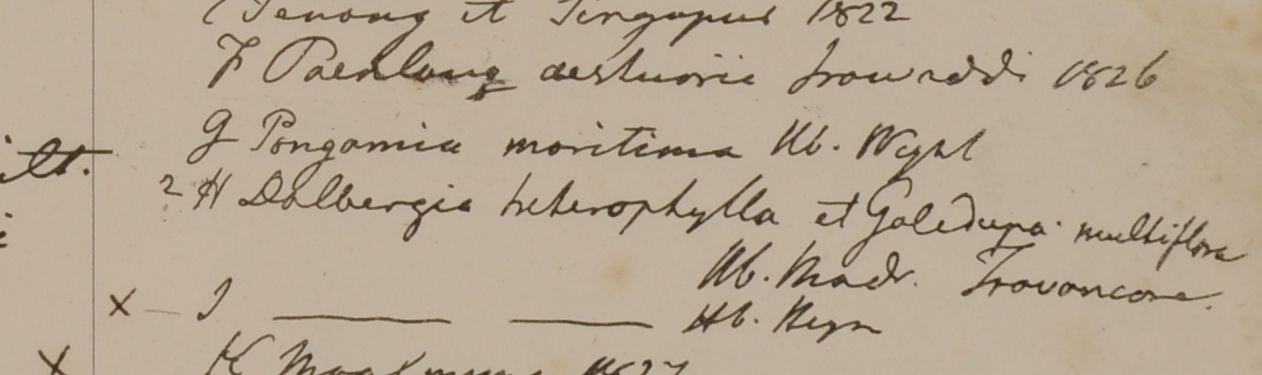 Penang et Singapur 1822
F Paenlang aestuarie Irawaddi 1826
ilt.
G Pongamia maritima Hb. Wight
? H Dalbergia heterophylla et Galedupa multiflora
Hb. Madr. Travancore.
X - I Hb. Heyn
X K Moalmyne 1827